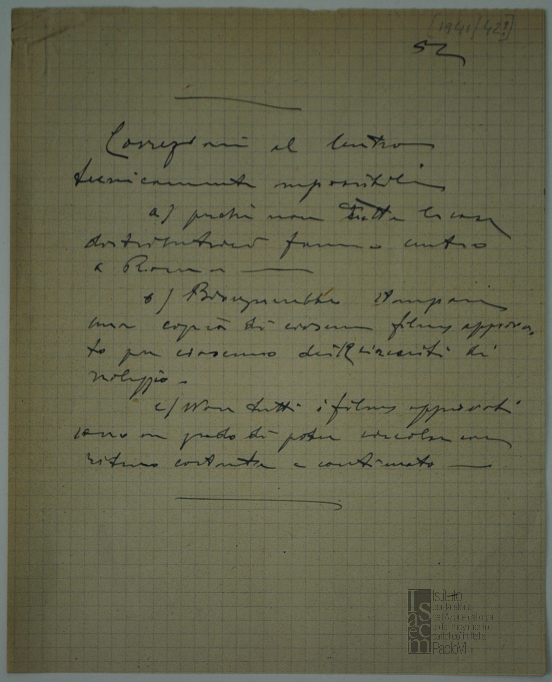 [1941/42?]
52
Correzioni al Centro
tecnicamente impossibili
a) perché non tutte le case
distributrici fanno centro
a Roma
b) Bisognerebbe stampare
una copia di ciascun films approva-
to per ciascuno dei circuiti di
noleggio.
c) Non tutti i films approvati
sono in grado di poter circolare con
ritmo costante e continuato
Isacem
Paolo VI